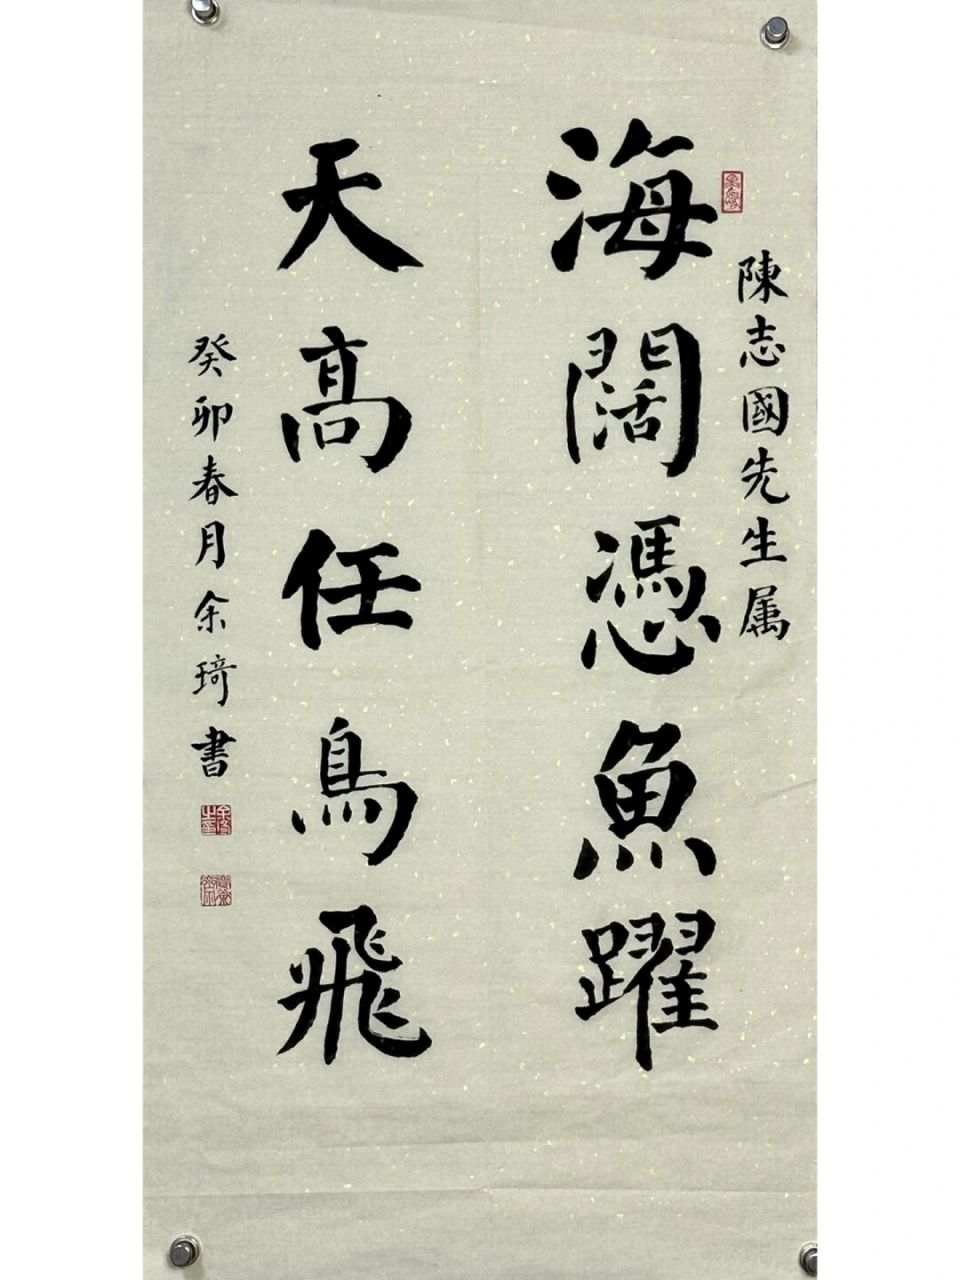 陳志國先生属
海闊憑魚躍
天高任鳥飛
癸卯春月余琦書